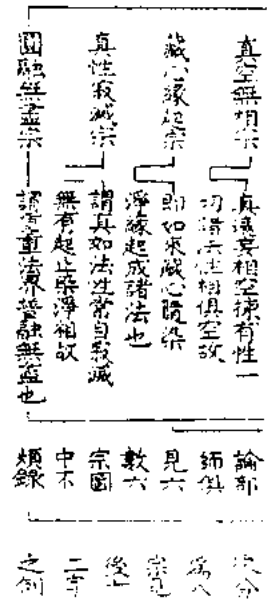 真空無相宗
真漫妄相空揀有性一
切諸法性相俱空故
藏心緣起宗
即如來藏心隨染
淨緣起成諸法也
真性寂滅宗
謂真如法性常自寂滅
無有起止染淨相故
圓融無盡宗
重法界皆融無盡也
論部
師俱
見六
數六
宗圖
中不
類錄
後
二
之例